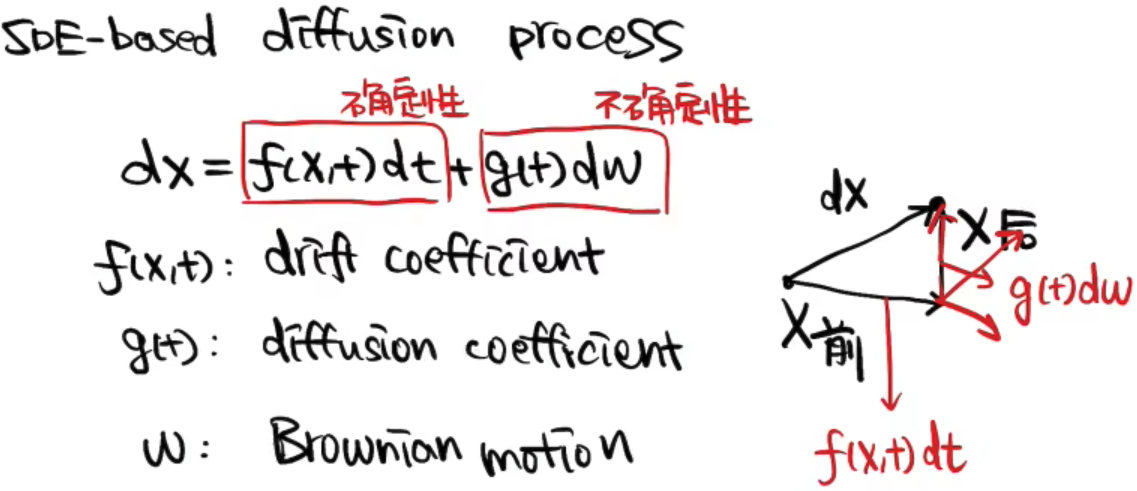 SDE-based diffusion process
确定性 不确定性
dx = f(x,t)dt + g(t)dw
f(x,t): drift coefficient
g(t): diffusion coefficient
w: Brownian motion
dx
X后
g(t)dw
X前
f(x,t)dt